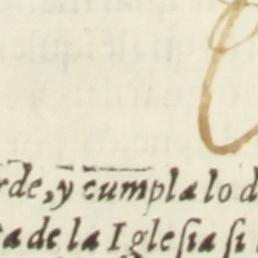 rde, y cumpla lo d
ca de la Iglesia si